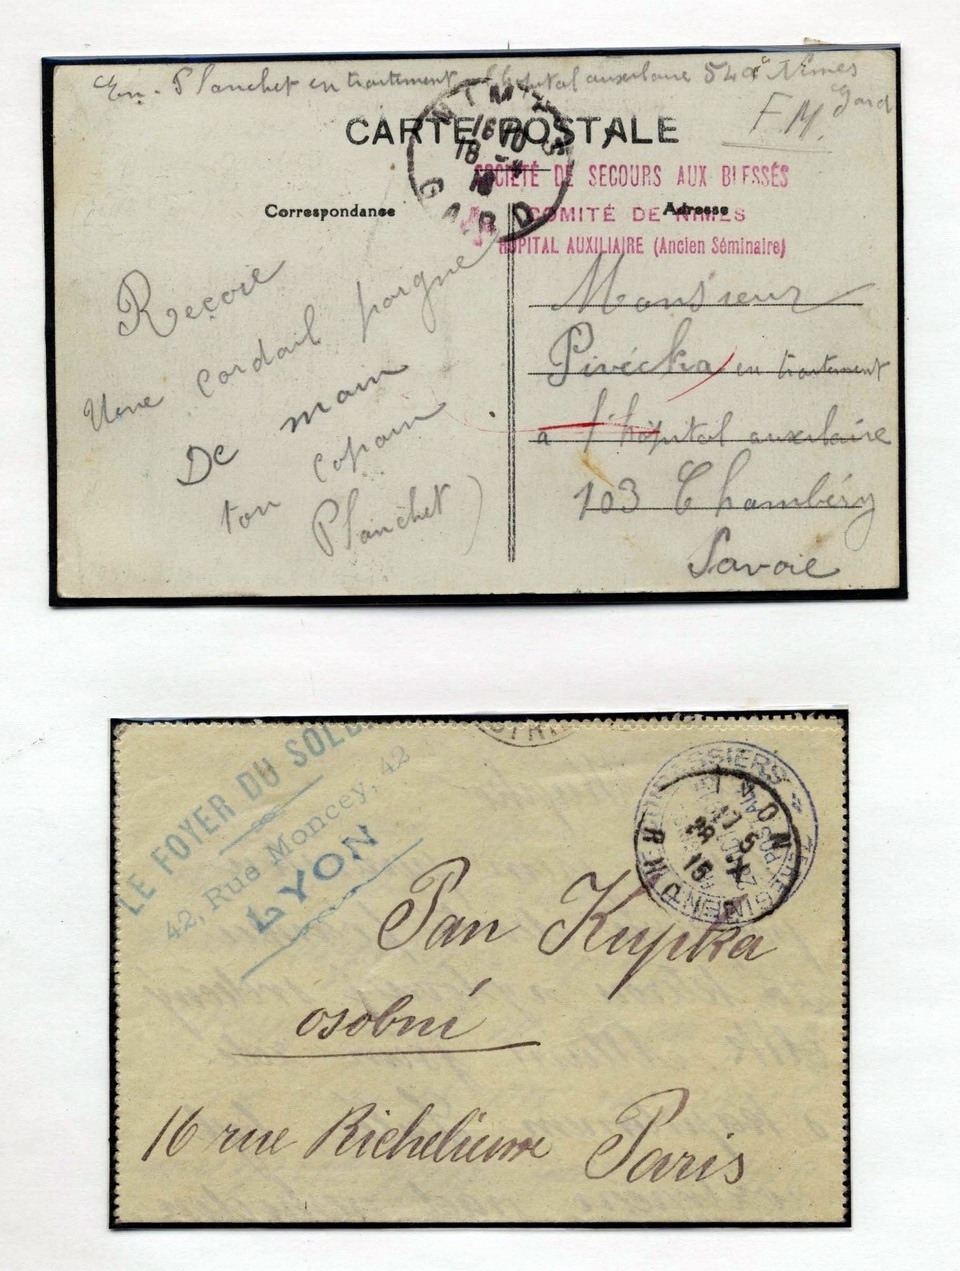 Em. Planchet en traitement l'hopital auxiliaire 54 Nimes
Gard
F.M.
CARTE POSTALE
NIMES
16 10
18 -4
16
GARD
SOCIÉTÉ DE SECOURS AUX BLESSÉS
COMITÉ DE NIMES
HOPITAL AUXILIAIRE (Ancien Séminaire)
Correspondance
Adresse
Reçoie
Une cordail poigne
De main
ton copain
Planchet
Monsieur
Pivécka en traitement
à l'hôpital auxilaire
103 Chambéry
Savoie
LE FOYER DU SOLD
42, Rue Moncey, 42
LYON
LYON
RHONE
28 -5
15
REGIMENT
Pan Kupka
osobní
16 rue Richelieu
Paris